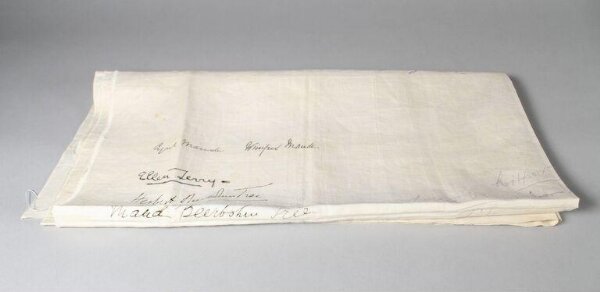 Cyril Maude Winifred Maude
Ellen Terry
Herbert Beerbohm Tree
Maud Beerbohm Tree